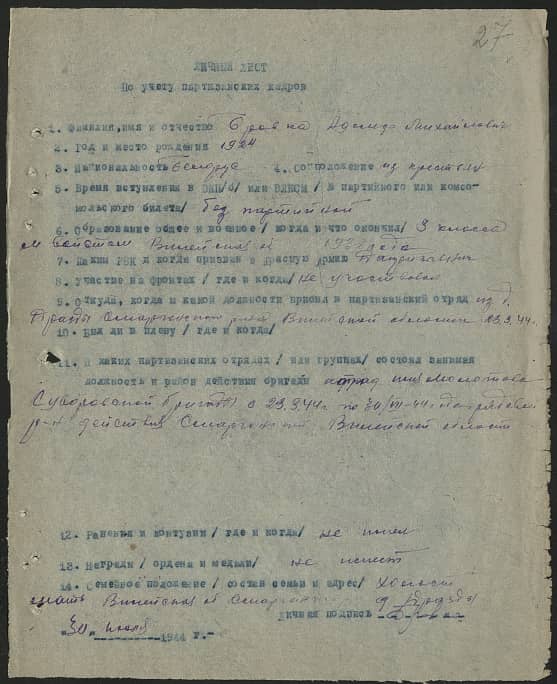 27
ЛИЧНЫЙ ЛИСТ
По учету партизанских кадров
1. Фамилия, имя и отчество Михайлович
2. Год и место рождения 1924
3. Национальность белорус 4. Соцположение из крестьян
5. Время вступления в ВКП/б/ или ВЛКСМ / № партийного или комсо-
мольского билета/ без партийной
6. Образование общее и военное / когда и что окончил/ 3 класса
Вилейской
7. Каким РВК и когда призван в Красную Армию
8. Участие на фронтах / где и когда/ не участвовал
9. Откуда, когда и какой должности прибыл в партизанский отряд из д.
Сморгонского р-на Вилейской области 23.3.44г.
10. Был ли в плену / где и когда/
11. В каких партизанских отрядах / или группах/ состоял занимая
должность и район действия бригады отряд им Молотова
Суворовской с 23.3.44г. по 30/VI-44г. рядовой
р-н действия Сморгонский Вилейской области
12. Раненья и контузии / где и когда/ не имел
13. Награды / ордена и медали/ не имеет
14. Семейное положение / состав семьи и адрес/ холост
мать Вилейская об д
личная подпись
"30" июля 1944 г.-